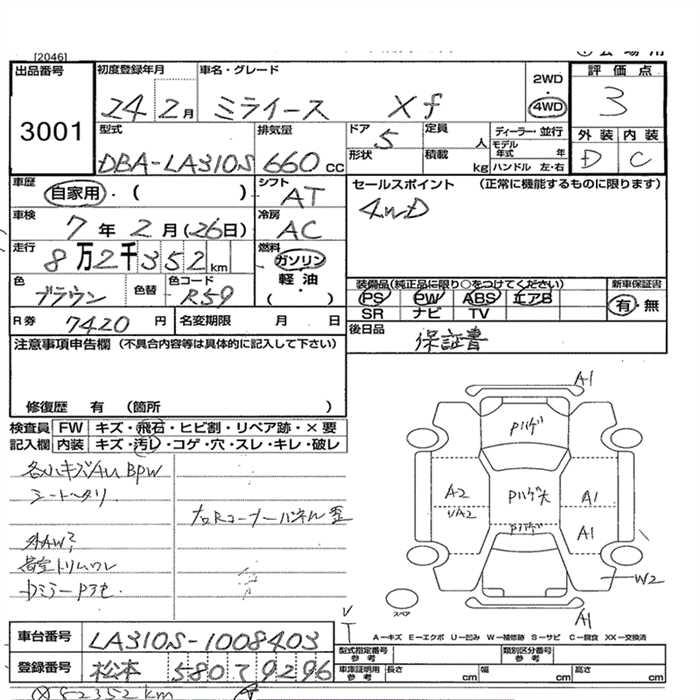 [2046]
出品番号
3001
初度登録年月
24 2月
車名・グレード
ミライース Xf
2WD
・
4WD
評価点
3
外装 内装
D C
型式
DBA-LA310S
排気量
660 cc
ドア 5
形状
定員 人
積載 kg
ディーラー・並行
モデル年式 年
ハンドル 左・右
車歴
自家用・( )
シフト
AT
車検
7年2月(26日)
冷房
AC
走行
8万2千352km
燃料
ガソリン
軽油
( )
色
ブラウン
色替
色コード
R59
R券
7420 円
名変期限 月 日
セールスポイント (正常に機能するものに限ります)
4WD
装備品(純正品に限り○をつけてください)
PS PW ABS エアB
SR ナビ TV
新車保証書
有・無
後日品
保証書
注意事項申告欄(不具合内容等は具体的に記入して下さい)
修復歴 有 (箇所 )
検査員記入欄
FW キズ・飛石・ヒビ割・リペア跡・×要
内装 キズ・汚レ・コゲ・穴・スレ・キレ・破レ
各小キズAU BPW
シートヘタリ
外AW?
荷室トリムワレ
DミラーP色
A1
Pハゲ
A2
Pハゲ大
A1
Pハゲ
A1
W2
A1
スペア
A-キズ E-エクボ U-凹み W-補修跡 S-サビ C-腐食 XX-交換済
車台番号
LA310S-1008403
登録番号
松本 580 て 9296
型式指定番号
参考
類別区分番号
参考
車庫証明用
参考
長さ cm
幅 cm
高さ cm
82352km